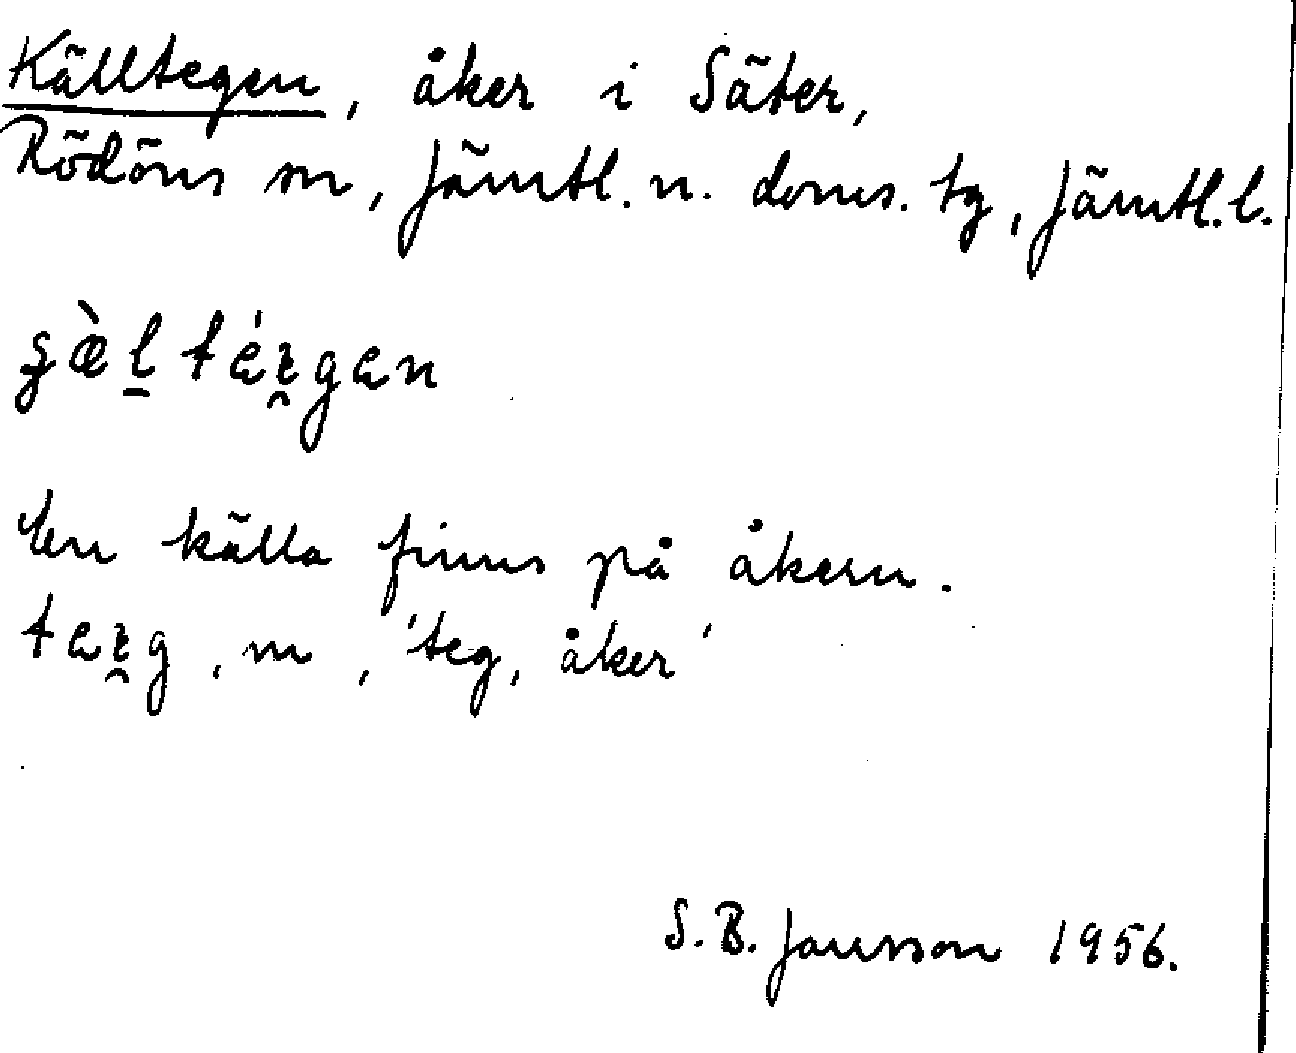 Källtegen, åker i Säter,
Rödöns sn, Jämtl. n. doms. tg, Jämtl. l.
En källa finns på åkern.
m, 'teg, åker'
S. B. Jansson 1956.